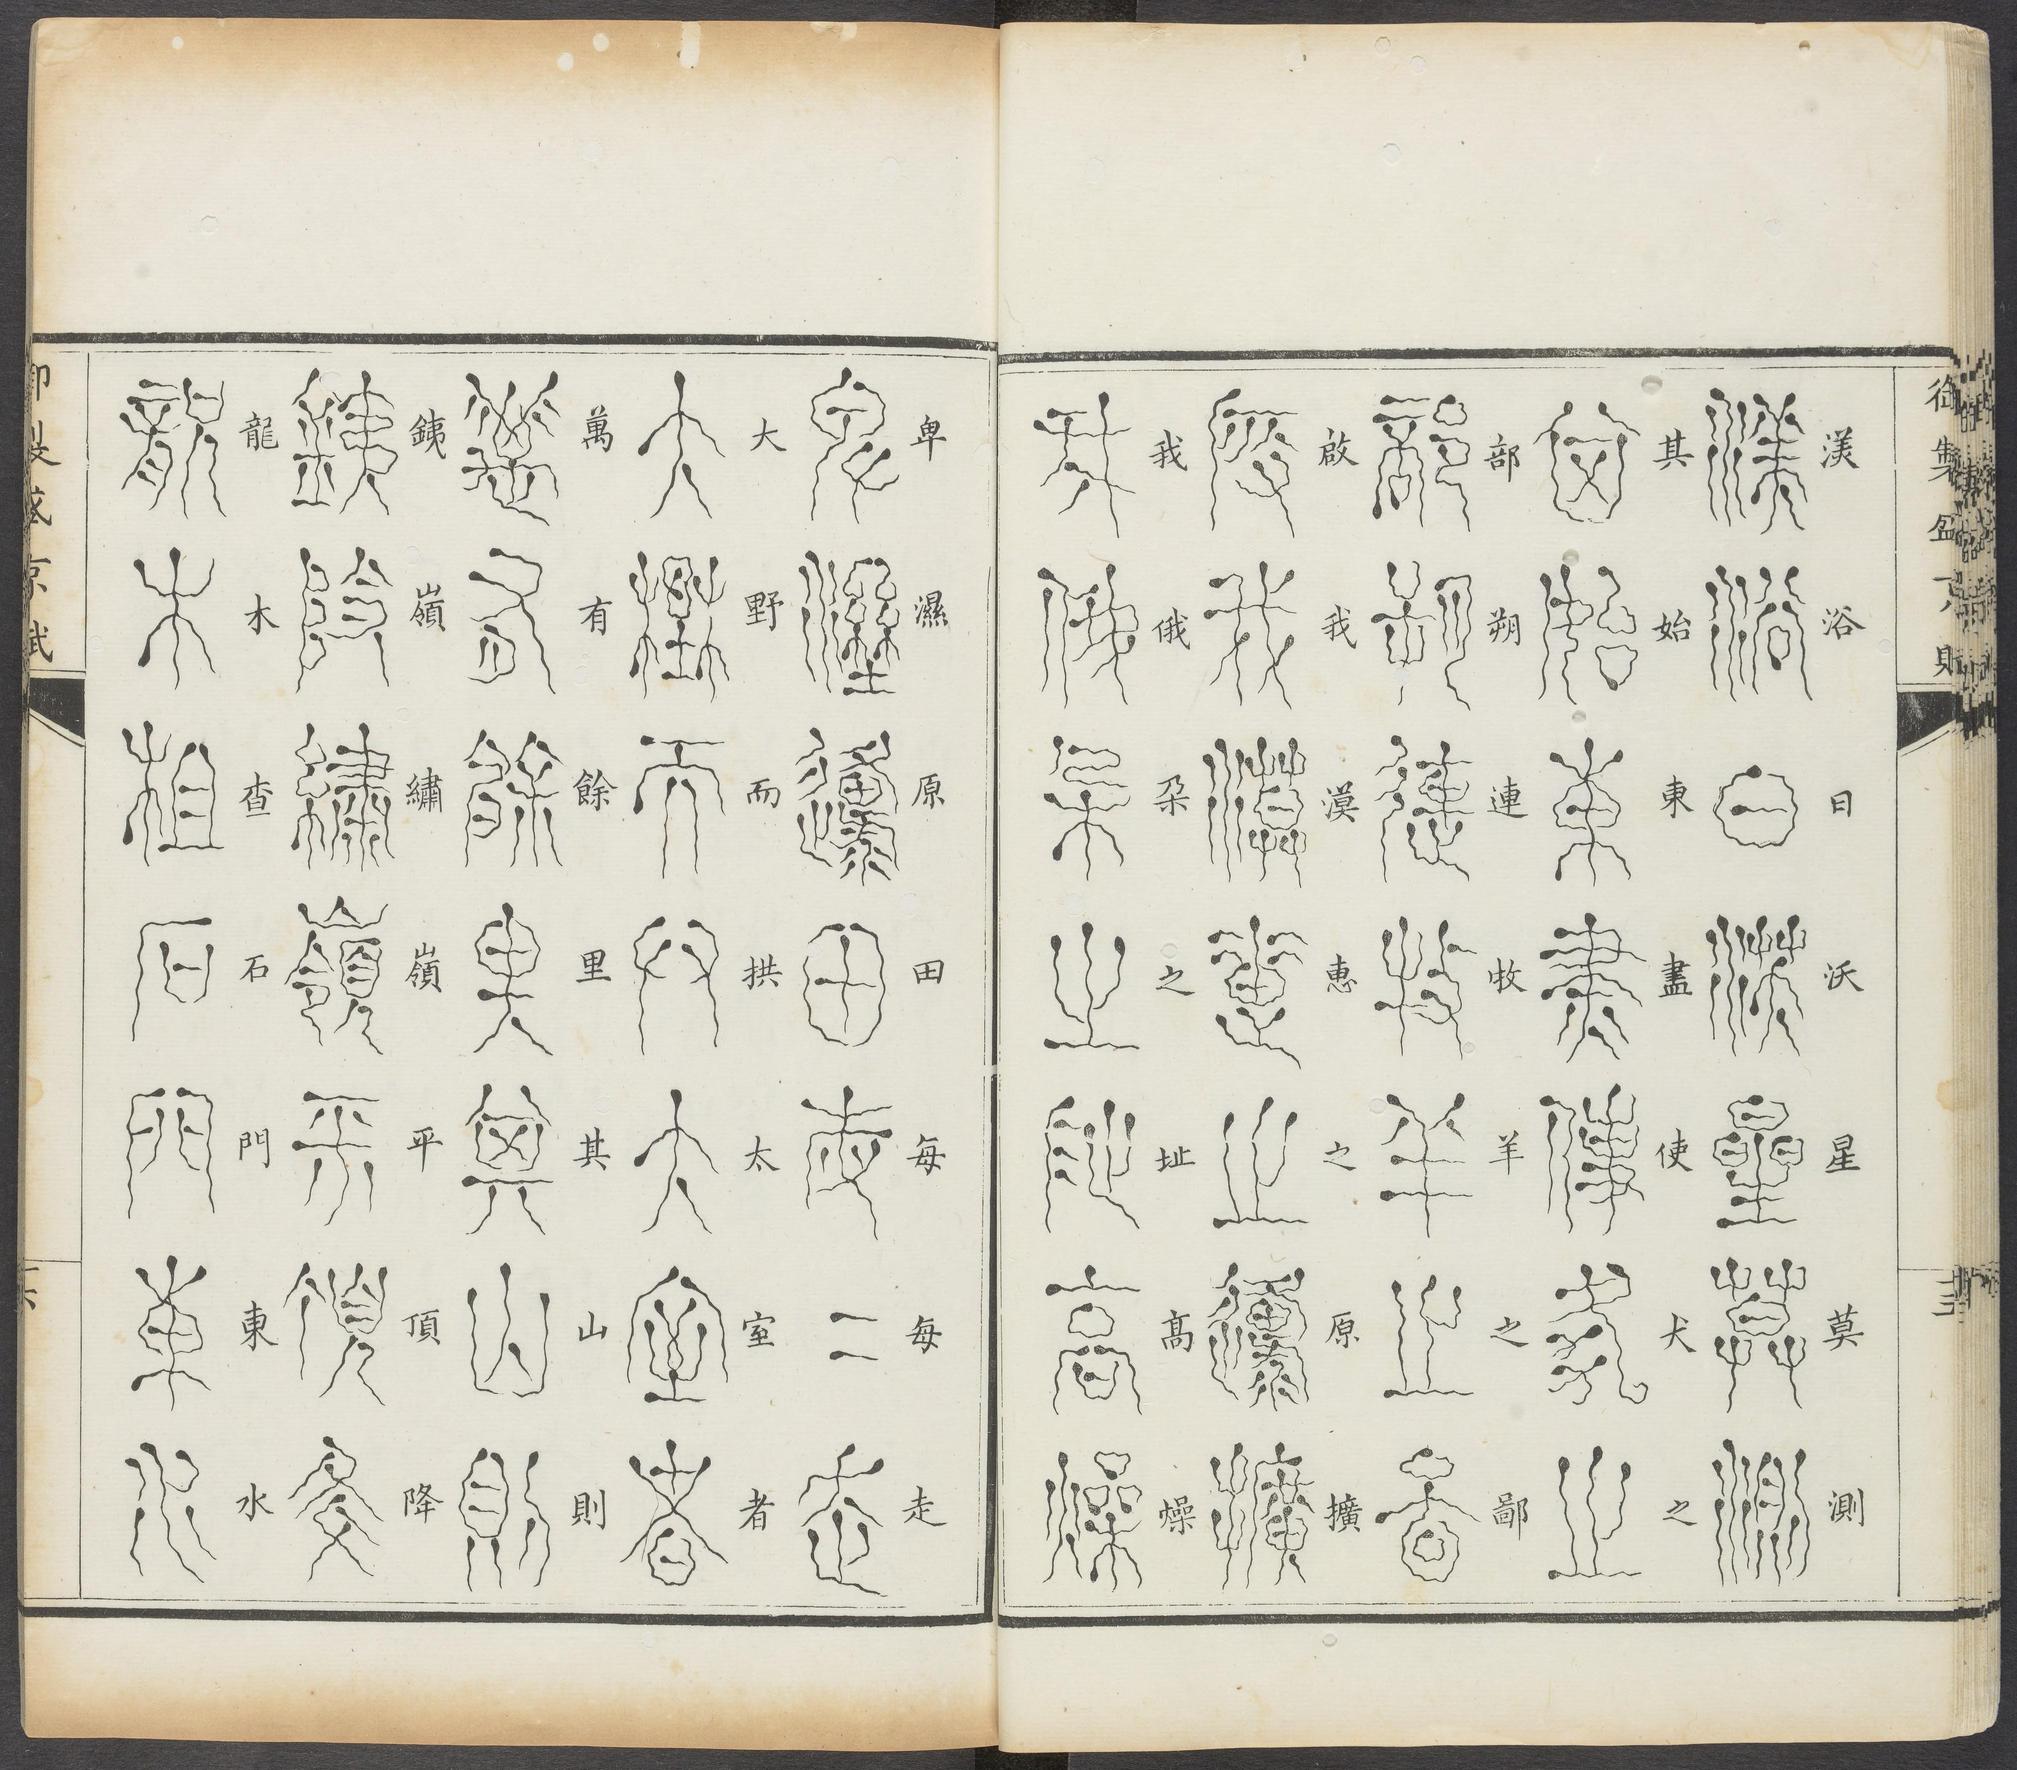 渼浴日沃星莫測
其始東盡使犬之
部朔連牧羊之鄙
啟我漠惠之原擴
我俄朶之址高燥
卑濕原田每每走
大野而拱太室者
萬有餘里其山則
銕嶺繡嶺平頂降
龍木查石門東水